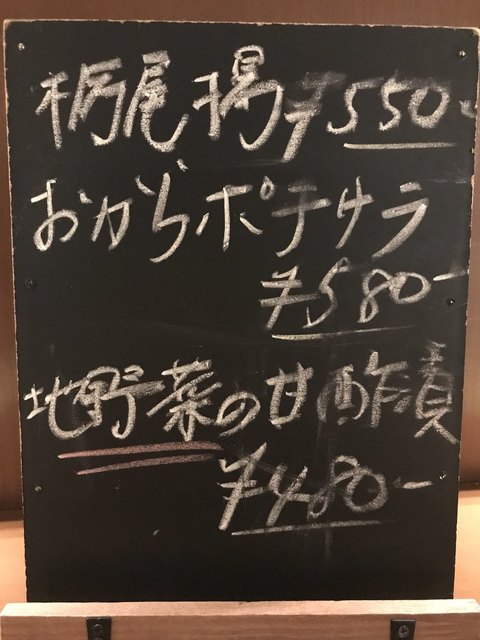 栃尾揚 ¥550-
おからポテサラ
¥580-
地野菜の甘酢漬
¥480-